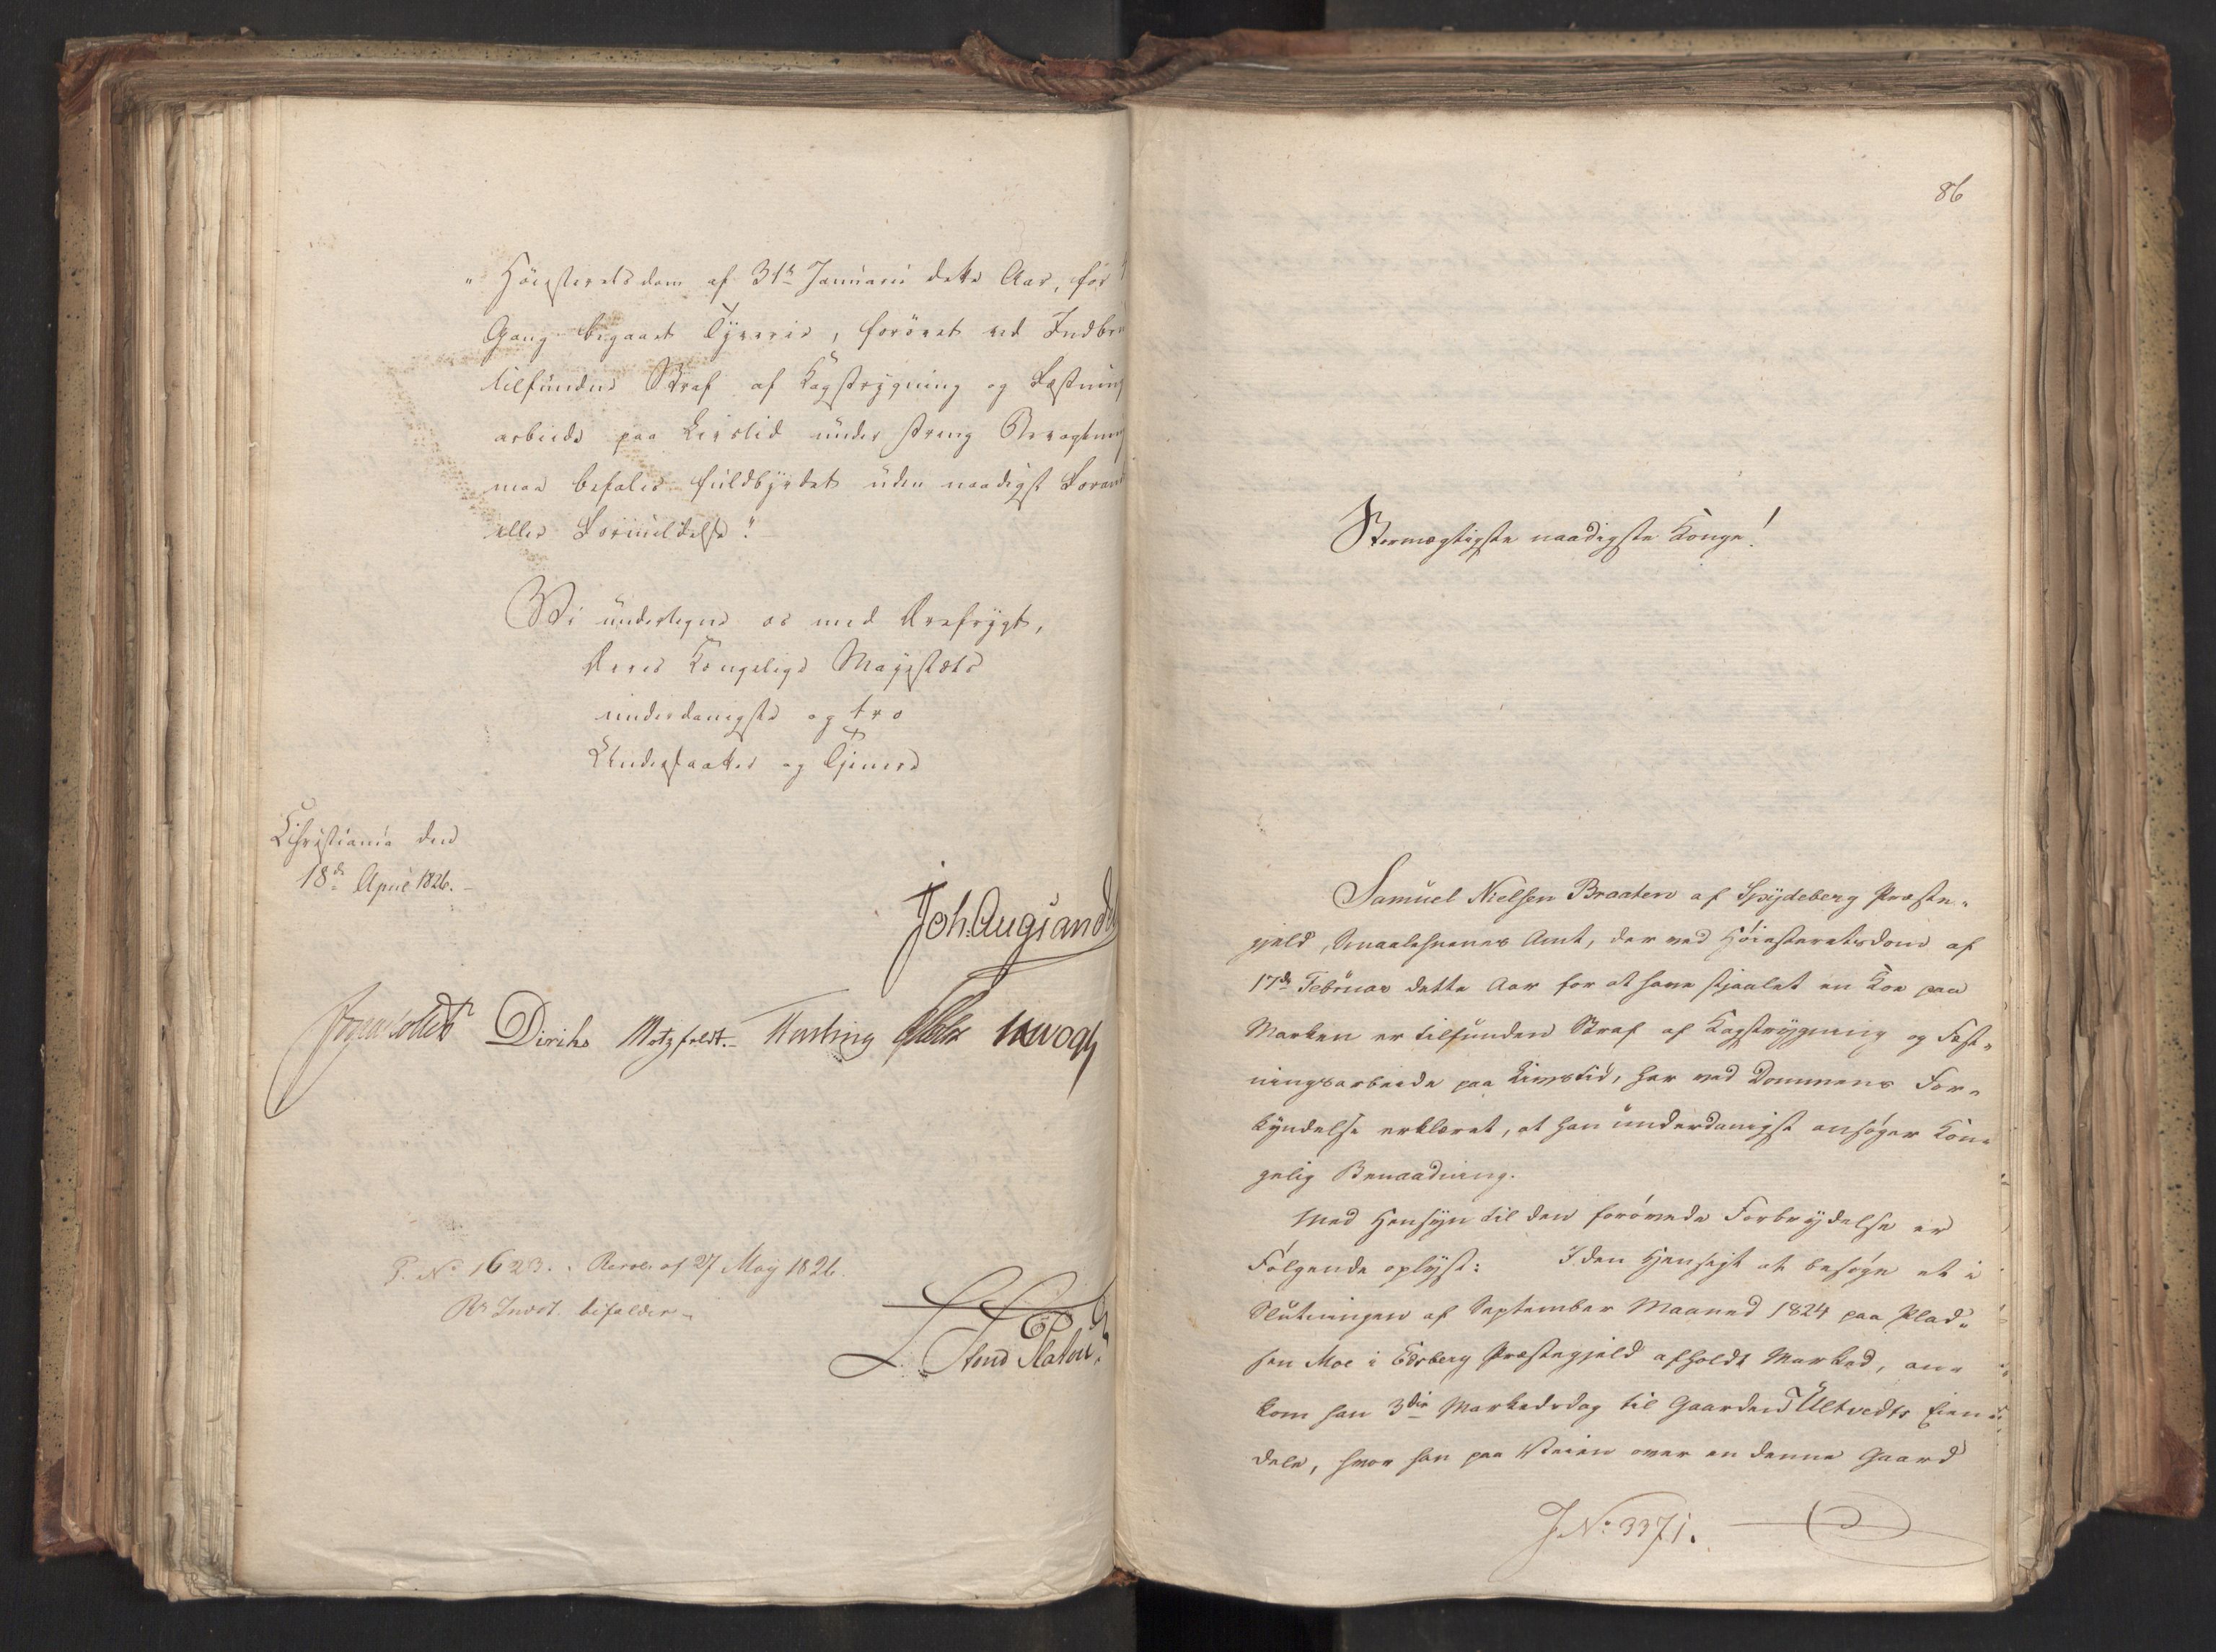 „Höiesteretsdom af 31te Januarii dette Aar, for
Gang begaaet Tyverie, forövet ved Indbr
tilfundne Straf af Kagstrygning og Fæstning
arbeide paa Livstid under streng Bevogtning
maa befales fuldbyrdet uden naadigst Forand
eller Formildelse."
Vi undertegne os med Ærefrygt,
Deres Kongelige Majestæts
underdanigste og tro
Undersaatter og Tjenere
Christiania den
18de April 1826.
Joh. Aug Sand
Diriks Motzfeldt. JHVogt
P. No 1623. Resol. af 27 May 1826.
Rs Indst. bifaldes
86
Stormægtigste naadigste Konge!
Samuel Nielsen Braaten af Spydeberg Præste-
gjeld, Smaalehnenes Amt, der ved Höiesteretsdom af
17de Februar dette Aar for at have stjaalet en Koe paa
Marken er tilfunden Straf af Kagstrygning og Fæst-
ningsarbeide paa Livstid, har ved Dommens For-
kyndelse erklæret, at han underdanigst ansöger Kon-
gelig Benaadning.
Med Hensyn til den forövede Forbrydelse er
Fölgende oplyst: I den Hensigt at besöge et i
Slutningen af September Maaned 1824 paa Plad-
sen Moe i Edsberg Præstegjeld afholdt Marked, an-
kom han 3die Markedsdag til Gaarden Ultvedts Eien-
dele, hvor han paa Veien over en denne Gaard
J. No 3371.